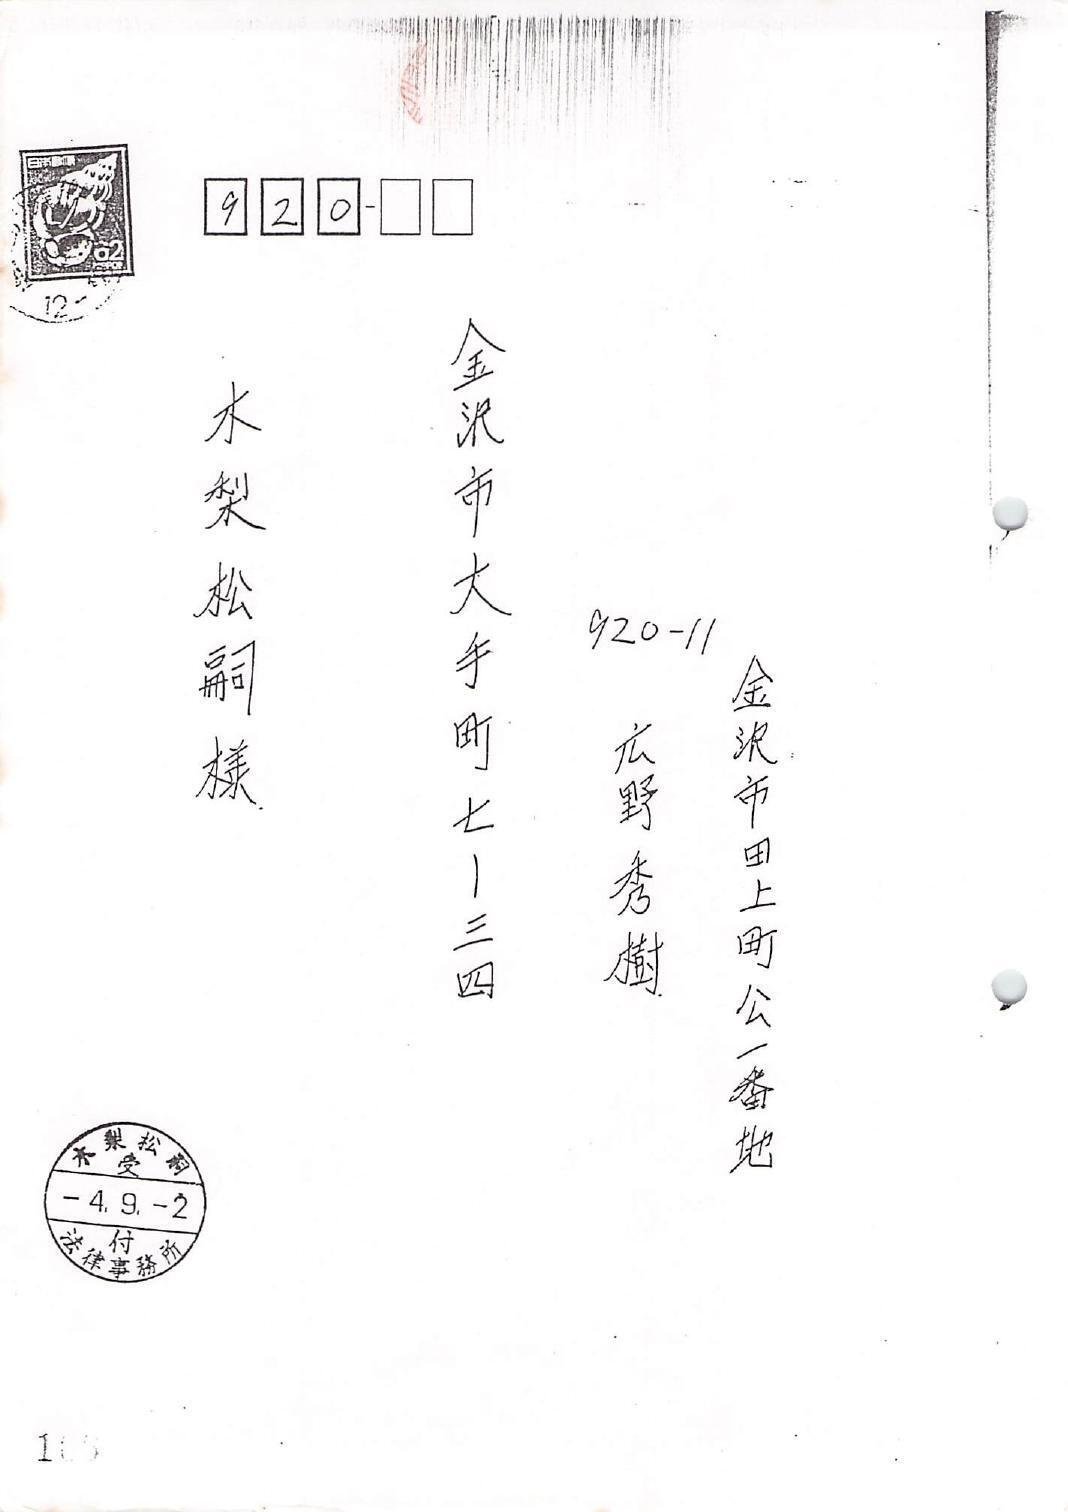 日本郵便
62
12
920-
金沢市大手町七ー三四
水梨松嗣様
920-11
金沢市田上町公一番地
広野秀樹
木梨松嗣
受
-4.9.-2
付
法律事務所